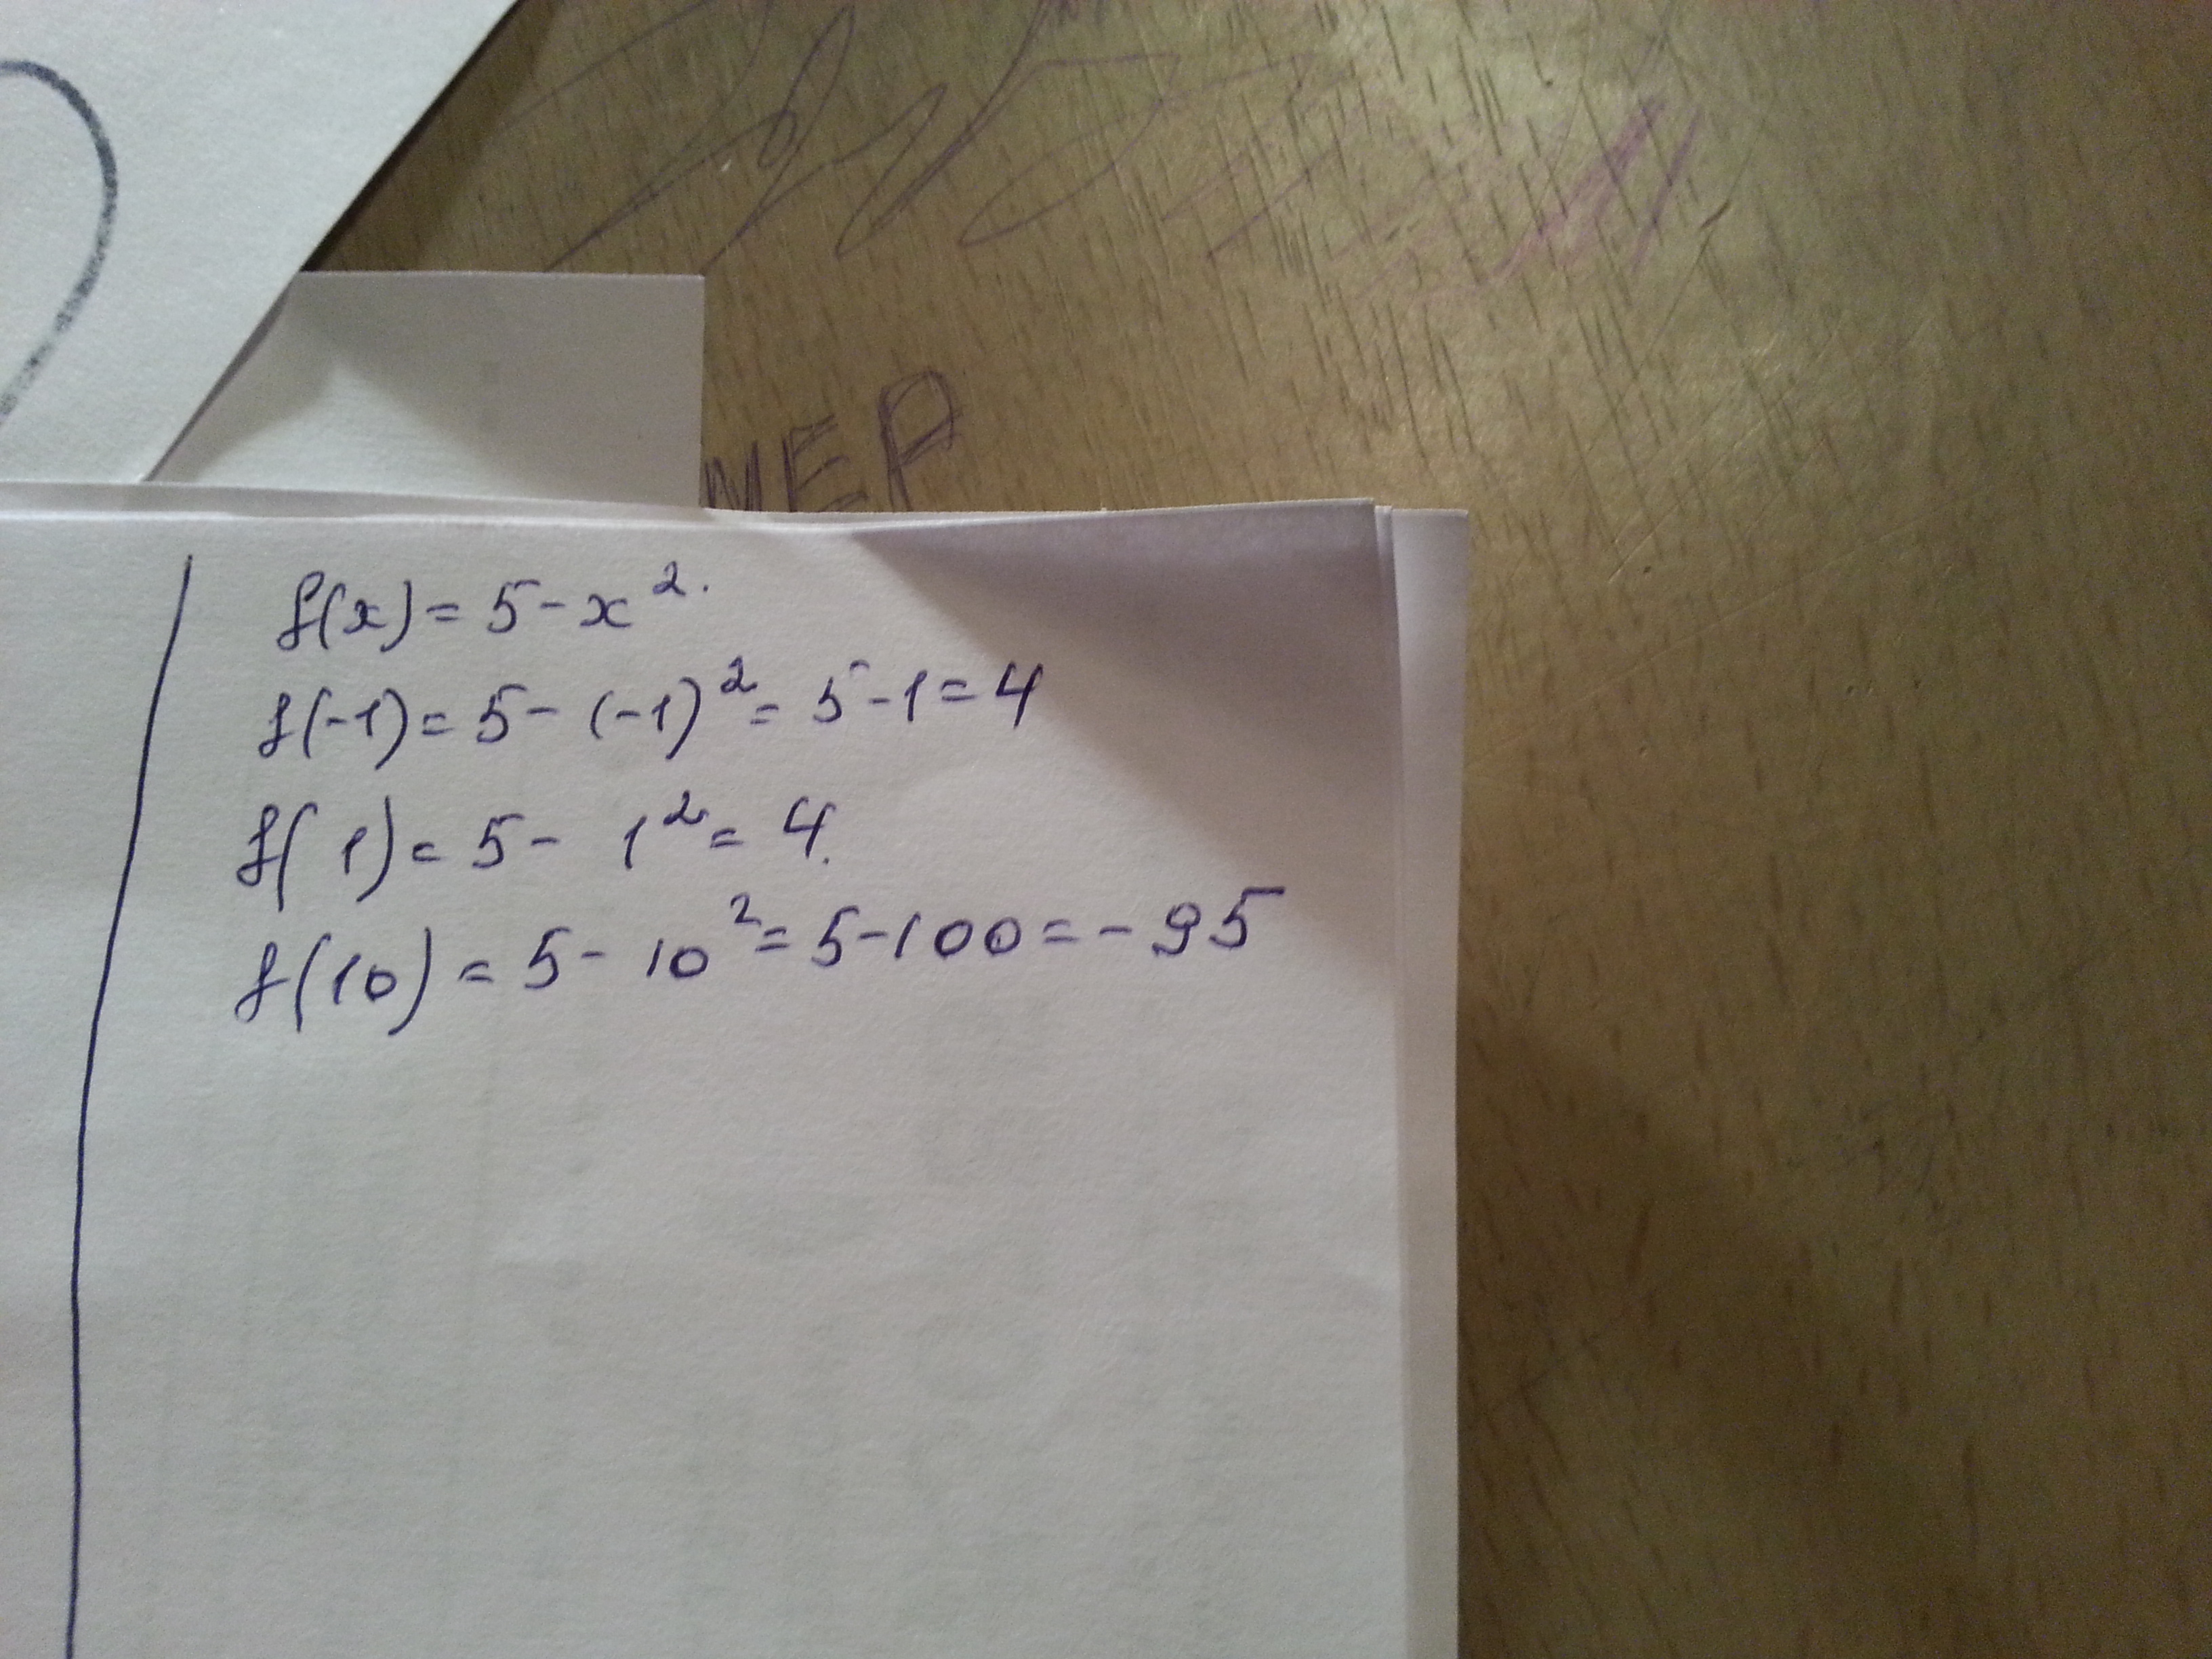 МЕР
f(x) = 5 - x².
f(-1) = 5 - (-1)² = 5 - 1 = 4
f( 1) = 5 - 1² = 4.
f(10) = 5 - 10² = 5 - 100 = - 95